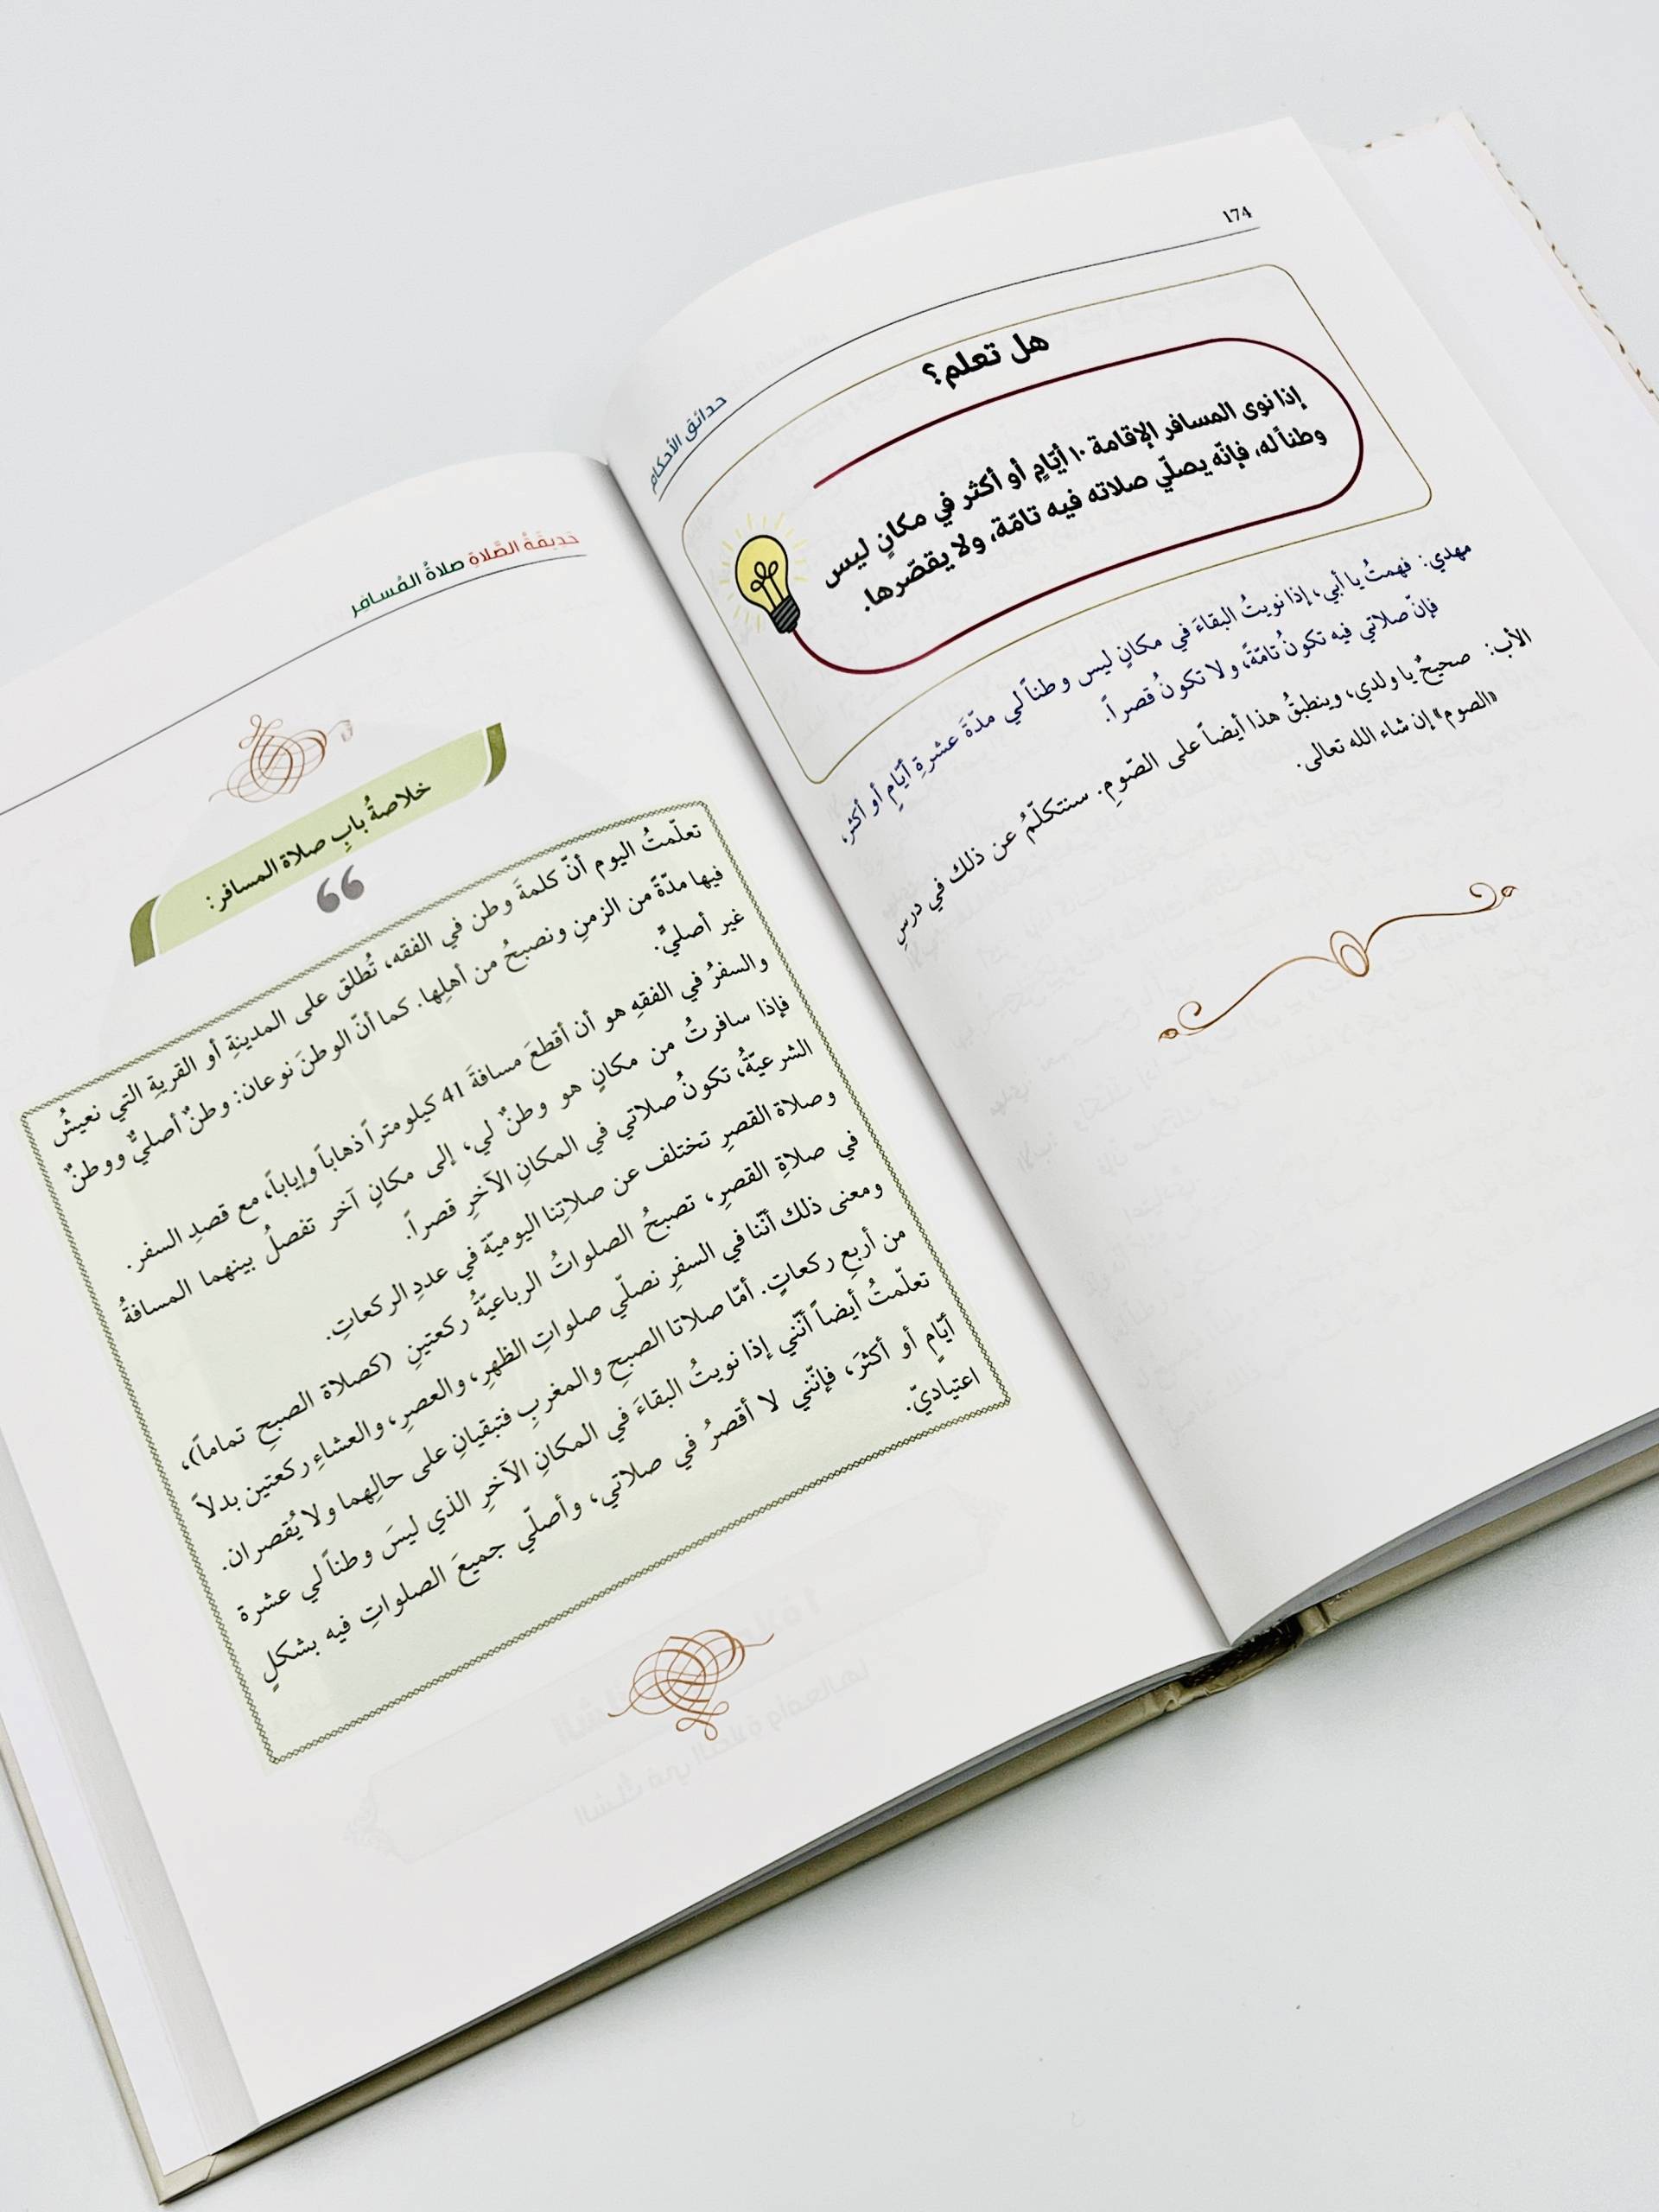 174
حدائق الأحكام
هل تعلم؟
إذا نوى المسافر الإقامة ١٠ أيّامٍ أو أكثر في مكانٍ ليس
وطناً له، فإنّه يصلّي صلاته فيه تامّة، ولا يقصّرها.
مهدي: فهمتُ يا أبي، إذا نويتُ البقاءَ في مكانٍ ليس وطناً لي مدّةَ عشرةِ أيّامٍ أو أكثر،
فإنّ صلاتي فيه تكونُ تامّةً، ولا تكونُ قصراً.
الأب: صحيحٌ يا ولدي، وينطبقُ هذا أيضاً على الصّومِ. سنتكلّمُ عن ذلك في درسِ
«الصوم» إن شاء الله تعالى.
حَديقَةُ الصَّلاة صلاةُ المُسافِر
خلاصةُ بابِ صلاة المسافر:
تعلّمتُ اليوم أنّ كلمةَ وطن في الفقه، تُطلق على المدينةِ أو القريةِ التي نعيشُ
فيها مدّةً من الزمنِ ونصبحُ من أهلِها. كما أنّ الوطنَ نوعان: وطنٌ أصليٌّ ووطنٌ
غير أصليٍّ.
والسفرُ في الفقهِ هو أن أقطعَ مسافةَ 41 كيلومتراً ذهاباً وإياباً، مع قصدِ السفر.
فإذا سافرتُ من مكانٍ هو وطنٌ لي، إلى مكانٍ آخر تفصلُ بينهما المسافةُ
الشرعيّةُ، تكونُ صلاتي في المكانِ الآخرِ قصراً.
وصلاة القصرِ تختلف عن صلاتِنا اليوميّة في عددِ الركعاتِ.
في صلاةِ القصرِ، تصبحُ الصلواتُ الرباعيّةُ ركعتينِ (كصلاة الصبحِ تماماً)،
ومعنى ذلك أنّنا في السفرِ نصلّي صلواتِ الظهرِ، والعصرِ، والعشاءِ ركعتين بدلاً
من أربعِ ركعاتٍ. أمّا صلاتا الصبحِ والمغربِ فتبقيانِ على حالِهما ولا يُقصران.
تعلّمتُ أيضاً أنّني إذا نويتُ البقاءَ في المكانِ الآخرِ الذي ليسَ وطناً لي عشرة
أيّامٍ أو أكثرَ، فإنّني لا أقصرُ في صلاتي، وأصلّي جميعَ الصلواتِ فيه بشكلٍ
اعتياديّ.